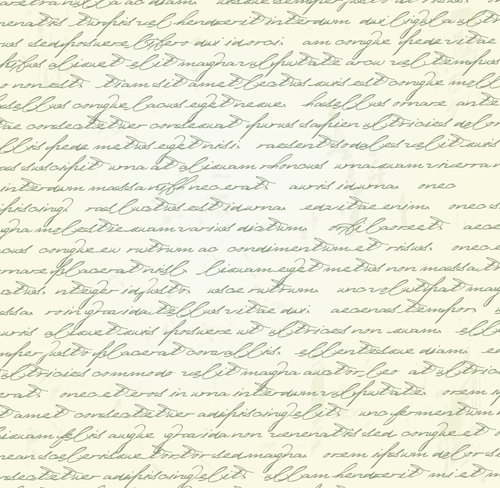 nenatis turpis vel hendrerit interdum dui ligula ult
us sed posuere libero dui id orci. am congue pede vitae
us aliquet elit magna vulputate arcu vel tempus
o non est. tiam sit amet lectus quis est congue moll
sellus congue lacus eget neque. hasellus ornare ant
tae consectetuer consequat purus sapien ultricies dolor
llis pede metus eget nisi. raesent sodales velit quis
as suscipit urna at aliquam rhoncus urna quam viverra
interdum massa nec erat. auris id urna. onec
ipiscing. ras luctus est id urna. ed vitae enim. onec
gna molestie quam varius dictum. laoreet.
cus congue eu rutrum ac condimentum et risus. onec
ornare placerat nisl. liquam eget metus non massa
ctus. nteger id justo. usce rutrum. unc volutpat mag
ssa. roin gravida tellus vitae dui. aecenas tempor
uris aliquet quis posuere ut ultricies non quam. ell
mper justo placerat convallis. ellentesque diam. e
ultricies commodo velit magna auctor leo at ultric
erat. onec et eros in urna interdum vulputate. orem i
t amet consectetuer adipiscing elit. unc fermentum
iquam felis augue gravida non venenatis sed congue et
nean scelerisque tortor sed magna. orem ipsum dolor s
ctetuer adipiscing elit. ullam hendrerit mi et